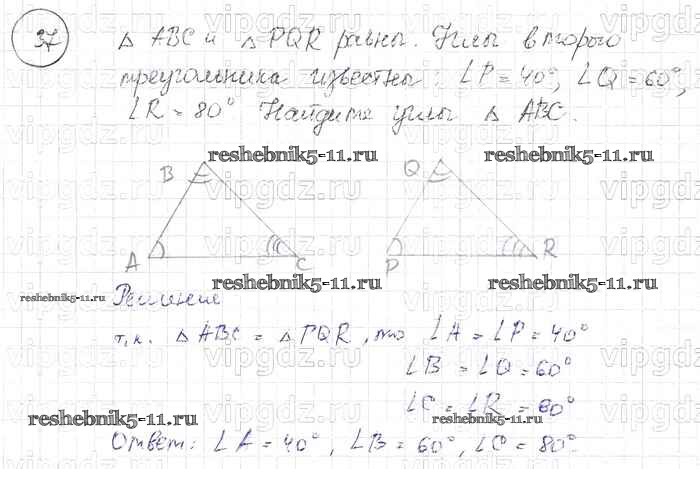 37
△ ABC и △ PQR равны. Углы второго
треугольника известны: ∠P = 40°, ∠Q = 60°,
∠R = 80° Найдите углы △ ABC.
reshebnik5-11.ru reshebnik5-11.ru
B Q
A C P R
reshebnik5-11.ru reshebnik5-11.ru
reshebnik5-11.ru Решение
т.к. △ ABC = △ PQR, то ∠A = ∠P = 40°
∠B = ∠Q = 60°
∠C = ∠R = 80°
reshebnik5-11.ru reshebnik5-11.ru
Ответ: ∠A = 40°, ∠B = 60°, ∠C = 80°.
vipgdz.ru